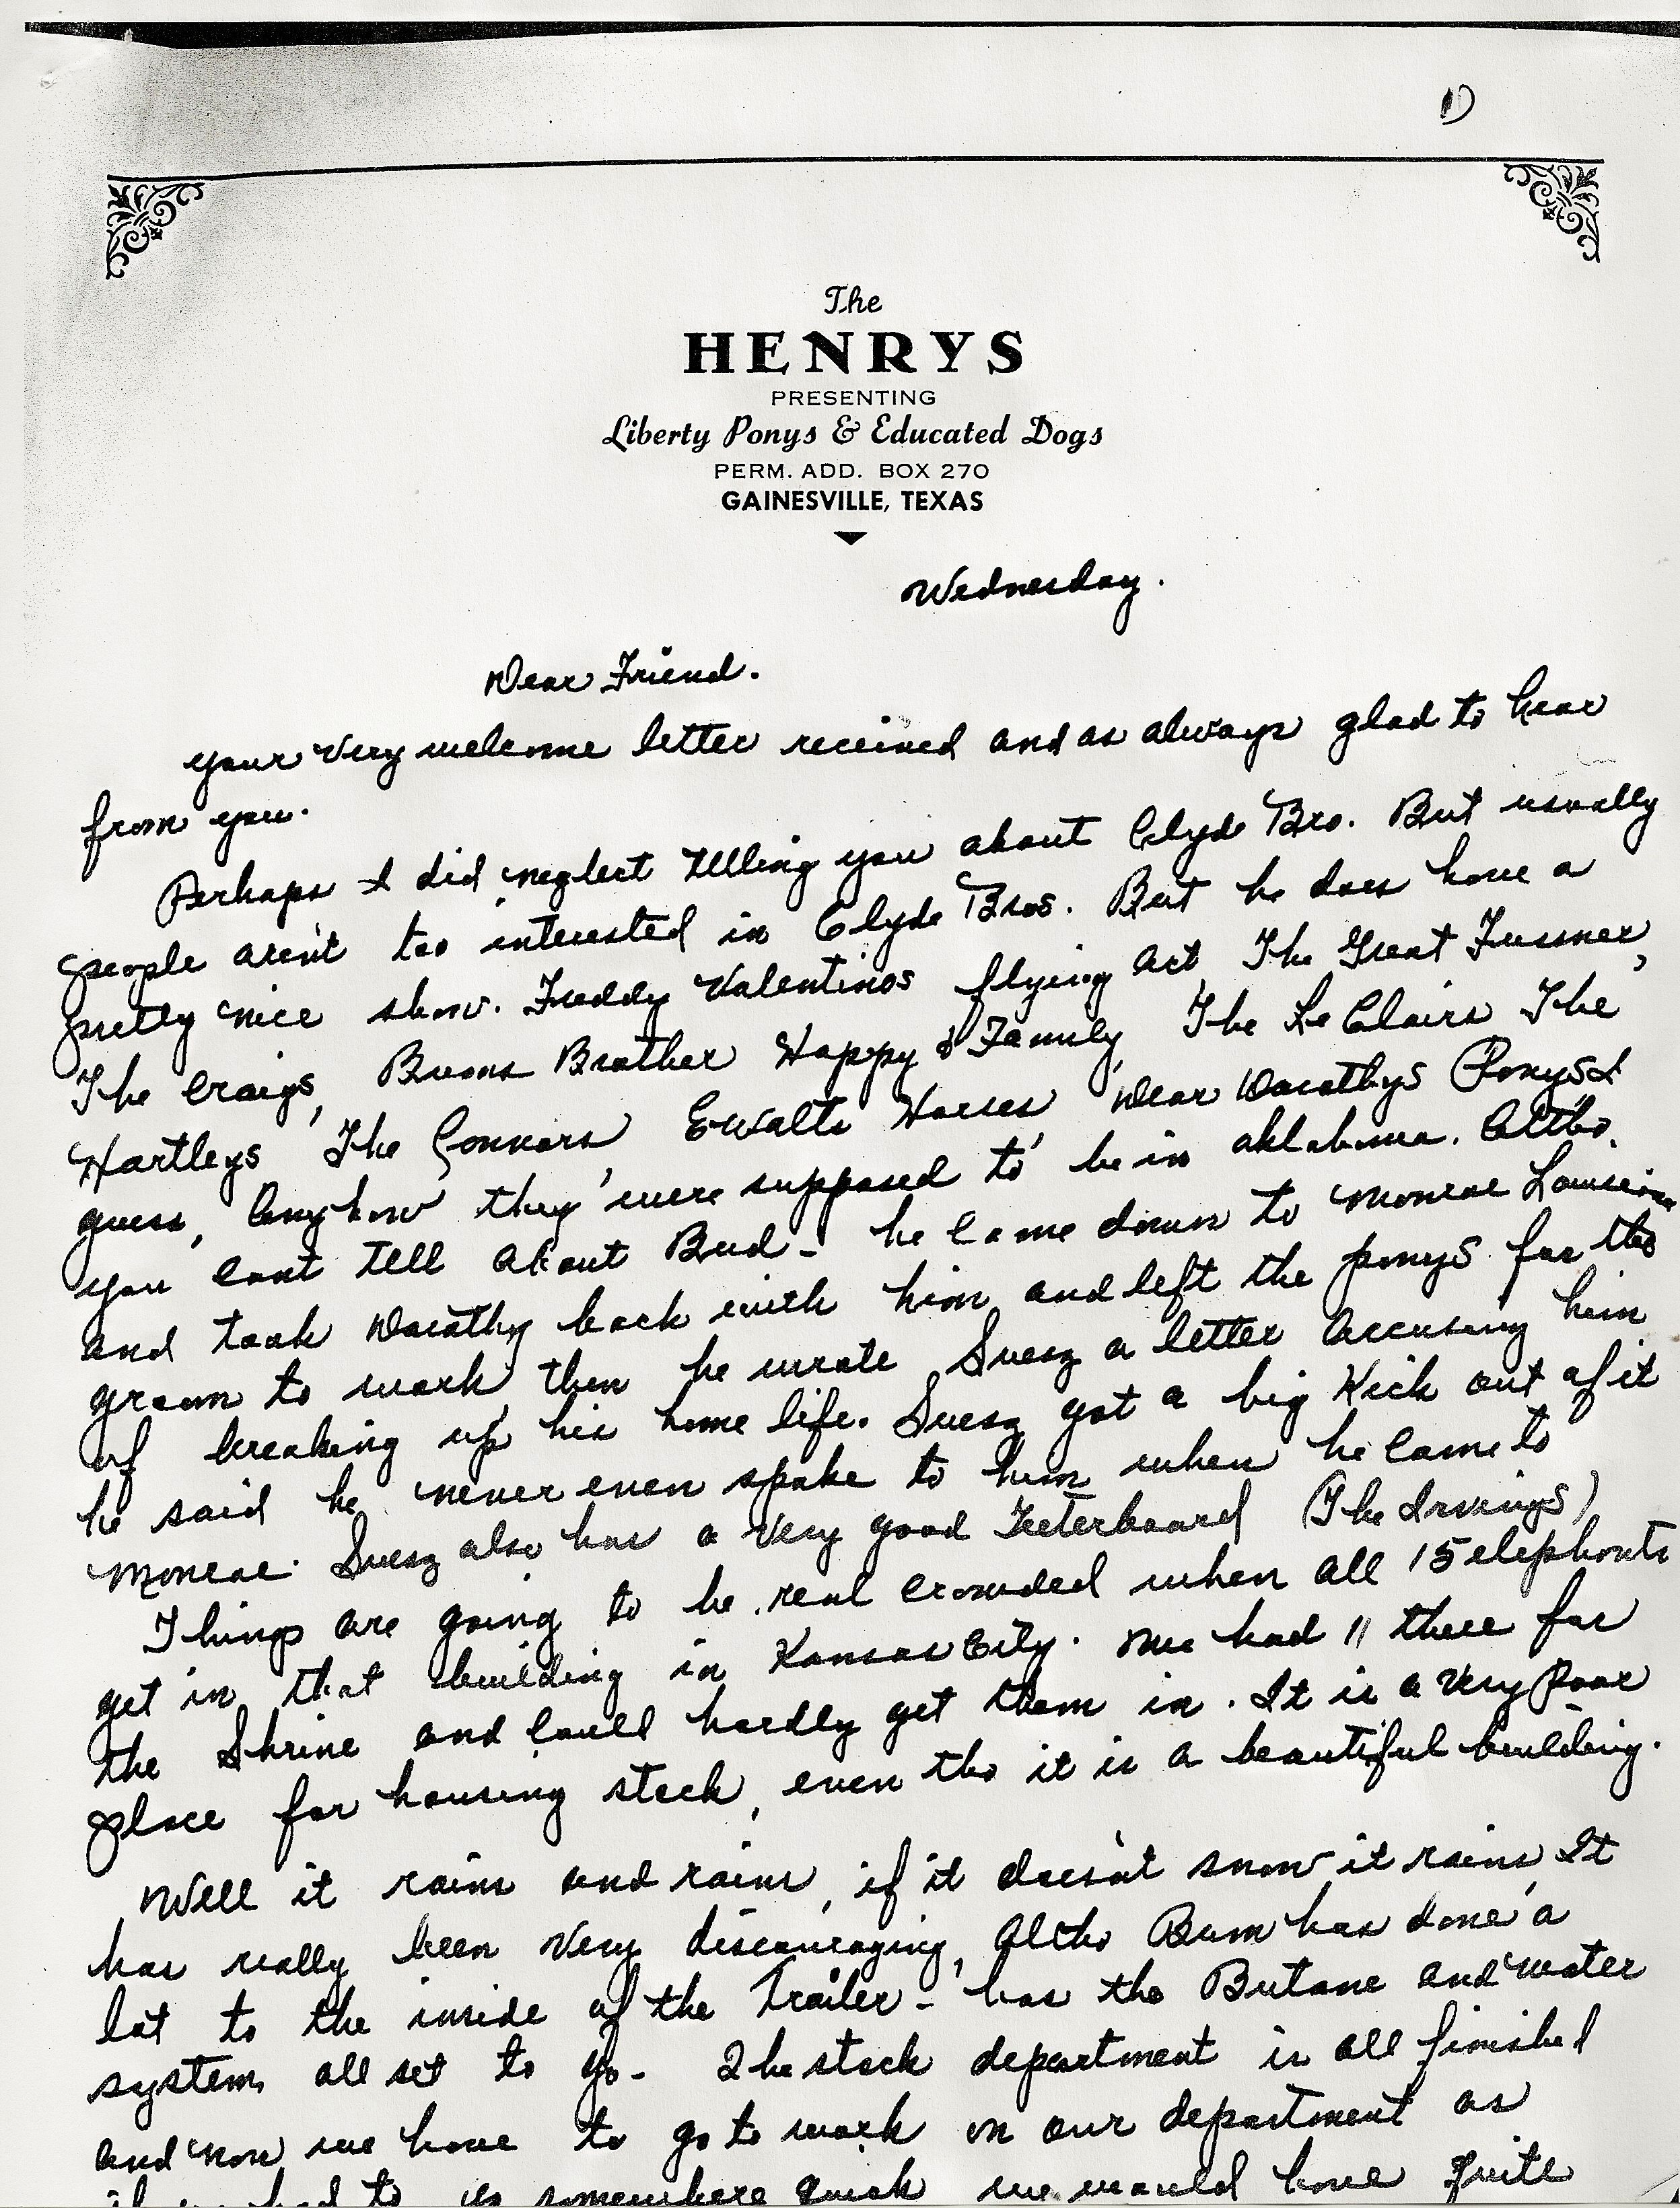 1)
The
HENRYS
PRESENTING
Liberty Ponys & Educated Dogs
PERM. ADD. BOX 270
GAINESVILLE, TEXAS
Wednesday.
Dear Friend.
your very welcome letter received and as always glad to hear
from you.
Perhaps I did neglect telling you about Clyde Bro. But usually
people aren't too interested in Clyde Bros. But he does have a
pretty nice show. Freddy Valentinos flying act, The Great Fussner,
The Craigs, Buons Brother Happy & Family, The Le Clairs The
Hartleys, The Connors, Ewalts Horses, Dear Dorothys Ponys I
guess, Anyhow they were supposed to be in Oklahoma. Altho.
you cant tell about Bud - he came down to Monroe Louisiana
and took Dorothy back with him and left the ponys for the
groom to work then he wrote Suesz a letter accusing him
of breaking up his home life. Suesz got a big Kick out of it
he said he never even spoke to him when he came to
Monroe. Suesz also has a very good Teeterboard (The Irvings)
Things are going to be real crowded when all 15 elephants
get in that building in Kansas City. We had 11 there for
the Shrine and could hardly get them in. It is a very Poor
place for housing stock, even tho it is a beautiful building.
Well it rains and rains, if it does'nt snow it rains, It
has really been very discouraging, Altho Bum has done a
lot to the inside of the Trailer - has the Butane and water
system all set to go - The stock department is all finished
and now we have to go to work on our department as
if we had to go somewhere quick we would have quite